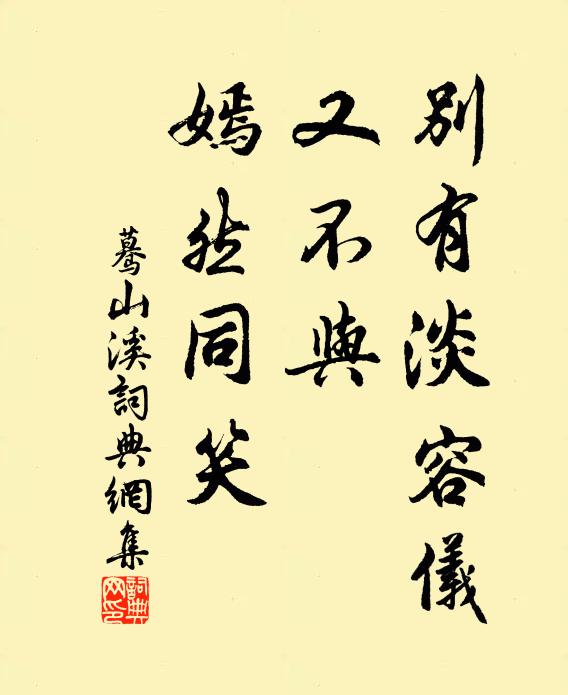 別有淡容儀
又不與
嫣然同笑
驀山溪詞典網集
詞典網印